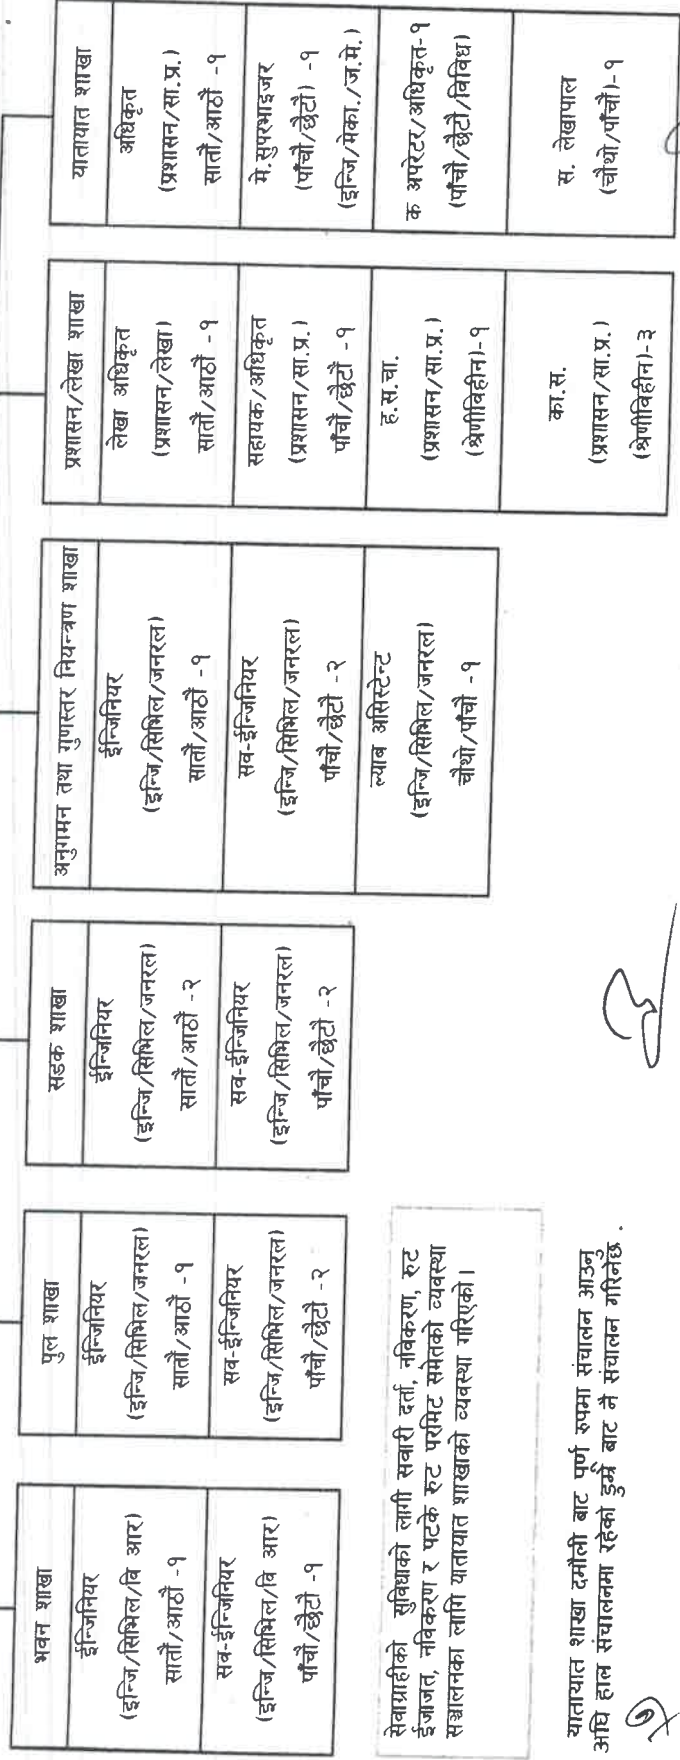 भवन शाखा
ईन्जिनियर
(इन्जि/सिभिल/वि आर)
सातौं/आठौं -१
सव-ईन्जिनियर
(इन्जि/सिभिल/वि आर)
पाँचौं/छैटौं -१
पुल शाखा
ईन्जिनियर
(इन्जि/सिभिल/जनरल)
सातौं/आठौं -१
सव-ईन्जिनियर
(इन्जि/सिभिल/जनरल)
पाँचौं/छैटौं -२
सडक शाखा
ईन्जिनियर
(इन्जि/सिभिल/जनरल)
सातौं/आठौं -२
सव-ईन्जिनियर
(इन्जि/सिभिल/जनरल)
पाँचौं/छैटौं -२
अनुगमन तथा गुणस्तर नियन्त्रण शाखा
ईन्जिनियर
(इन्जि/सिभिल/जनरल)
सातौं/आठौं -१
सव-ईन्जिनियर
(इन्जि/सिभिल/जनरल)
पाँचौं/छैटौं -२
ल्याब असिस्टेन्ट
(इन्जि/सिभिल/जनरल)
चौथो/पाँचौं -१
प्रशासन/लेखा शाखा
लेखा अधिकृत
(प्रशासन/लेखा)
सातौं/आठौं -१
सहायक/अधिकृत
(प्रशासन/सा.प्र.)
पाँचौं/छैटौं -१
ह.स.चा.
(प्रशासन/सा.प्र.)
(श्रेणीविहीन)-१
का.स.
(प्रशासन/सा.प्र.)
(श्रेणीविहीन)-३
यातायात शाखा
अधिकृत
(प्रशासन/सा.प्र.)
सातौं/आठौं -१
मे.सुपरभाइजर
(पाँचौं/छैटौं) -१
(इन्जि/मेका./ज.मे.)
क अपरेटर/अधिकृत-१
(पाँचौं/छैटौं/विविध)
स. लेखापाल
(चौथो/पाँचौं)-१
सेवाग्राहीको सुविधाको लागी सवारी दर्ता, नविकरण, रुट
ईजाजत, नविकरण र पटके रुट परमिट समेतको व्यवस्था
सञ्चालनका लागि यातायात शाखाको व्यवस्था गरिएको।
यातायात शाखा दमौली बाट पूर्ण रुपमा संचालन आउनु
अघि हाल संचालनमा रहेको डुम्रे बाट नै संचालन गरिनेछ.